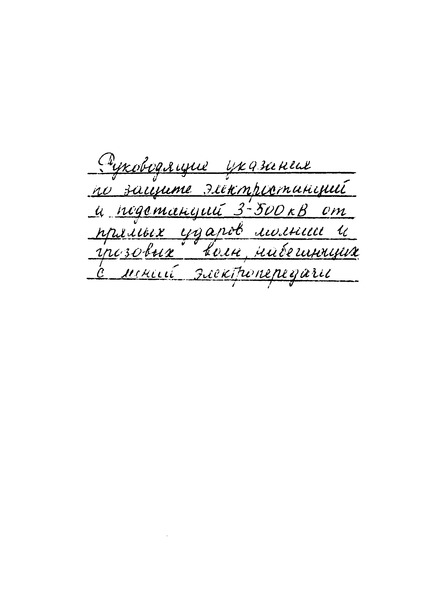 Руководящие указания
по защите электростанций
и подстанций 3-500 кВ от
прямых ударов молнии и
грозовых волн, набегающих
с линий электропередачи